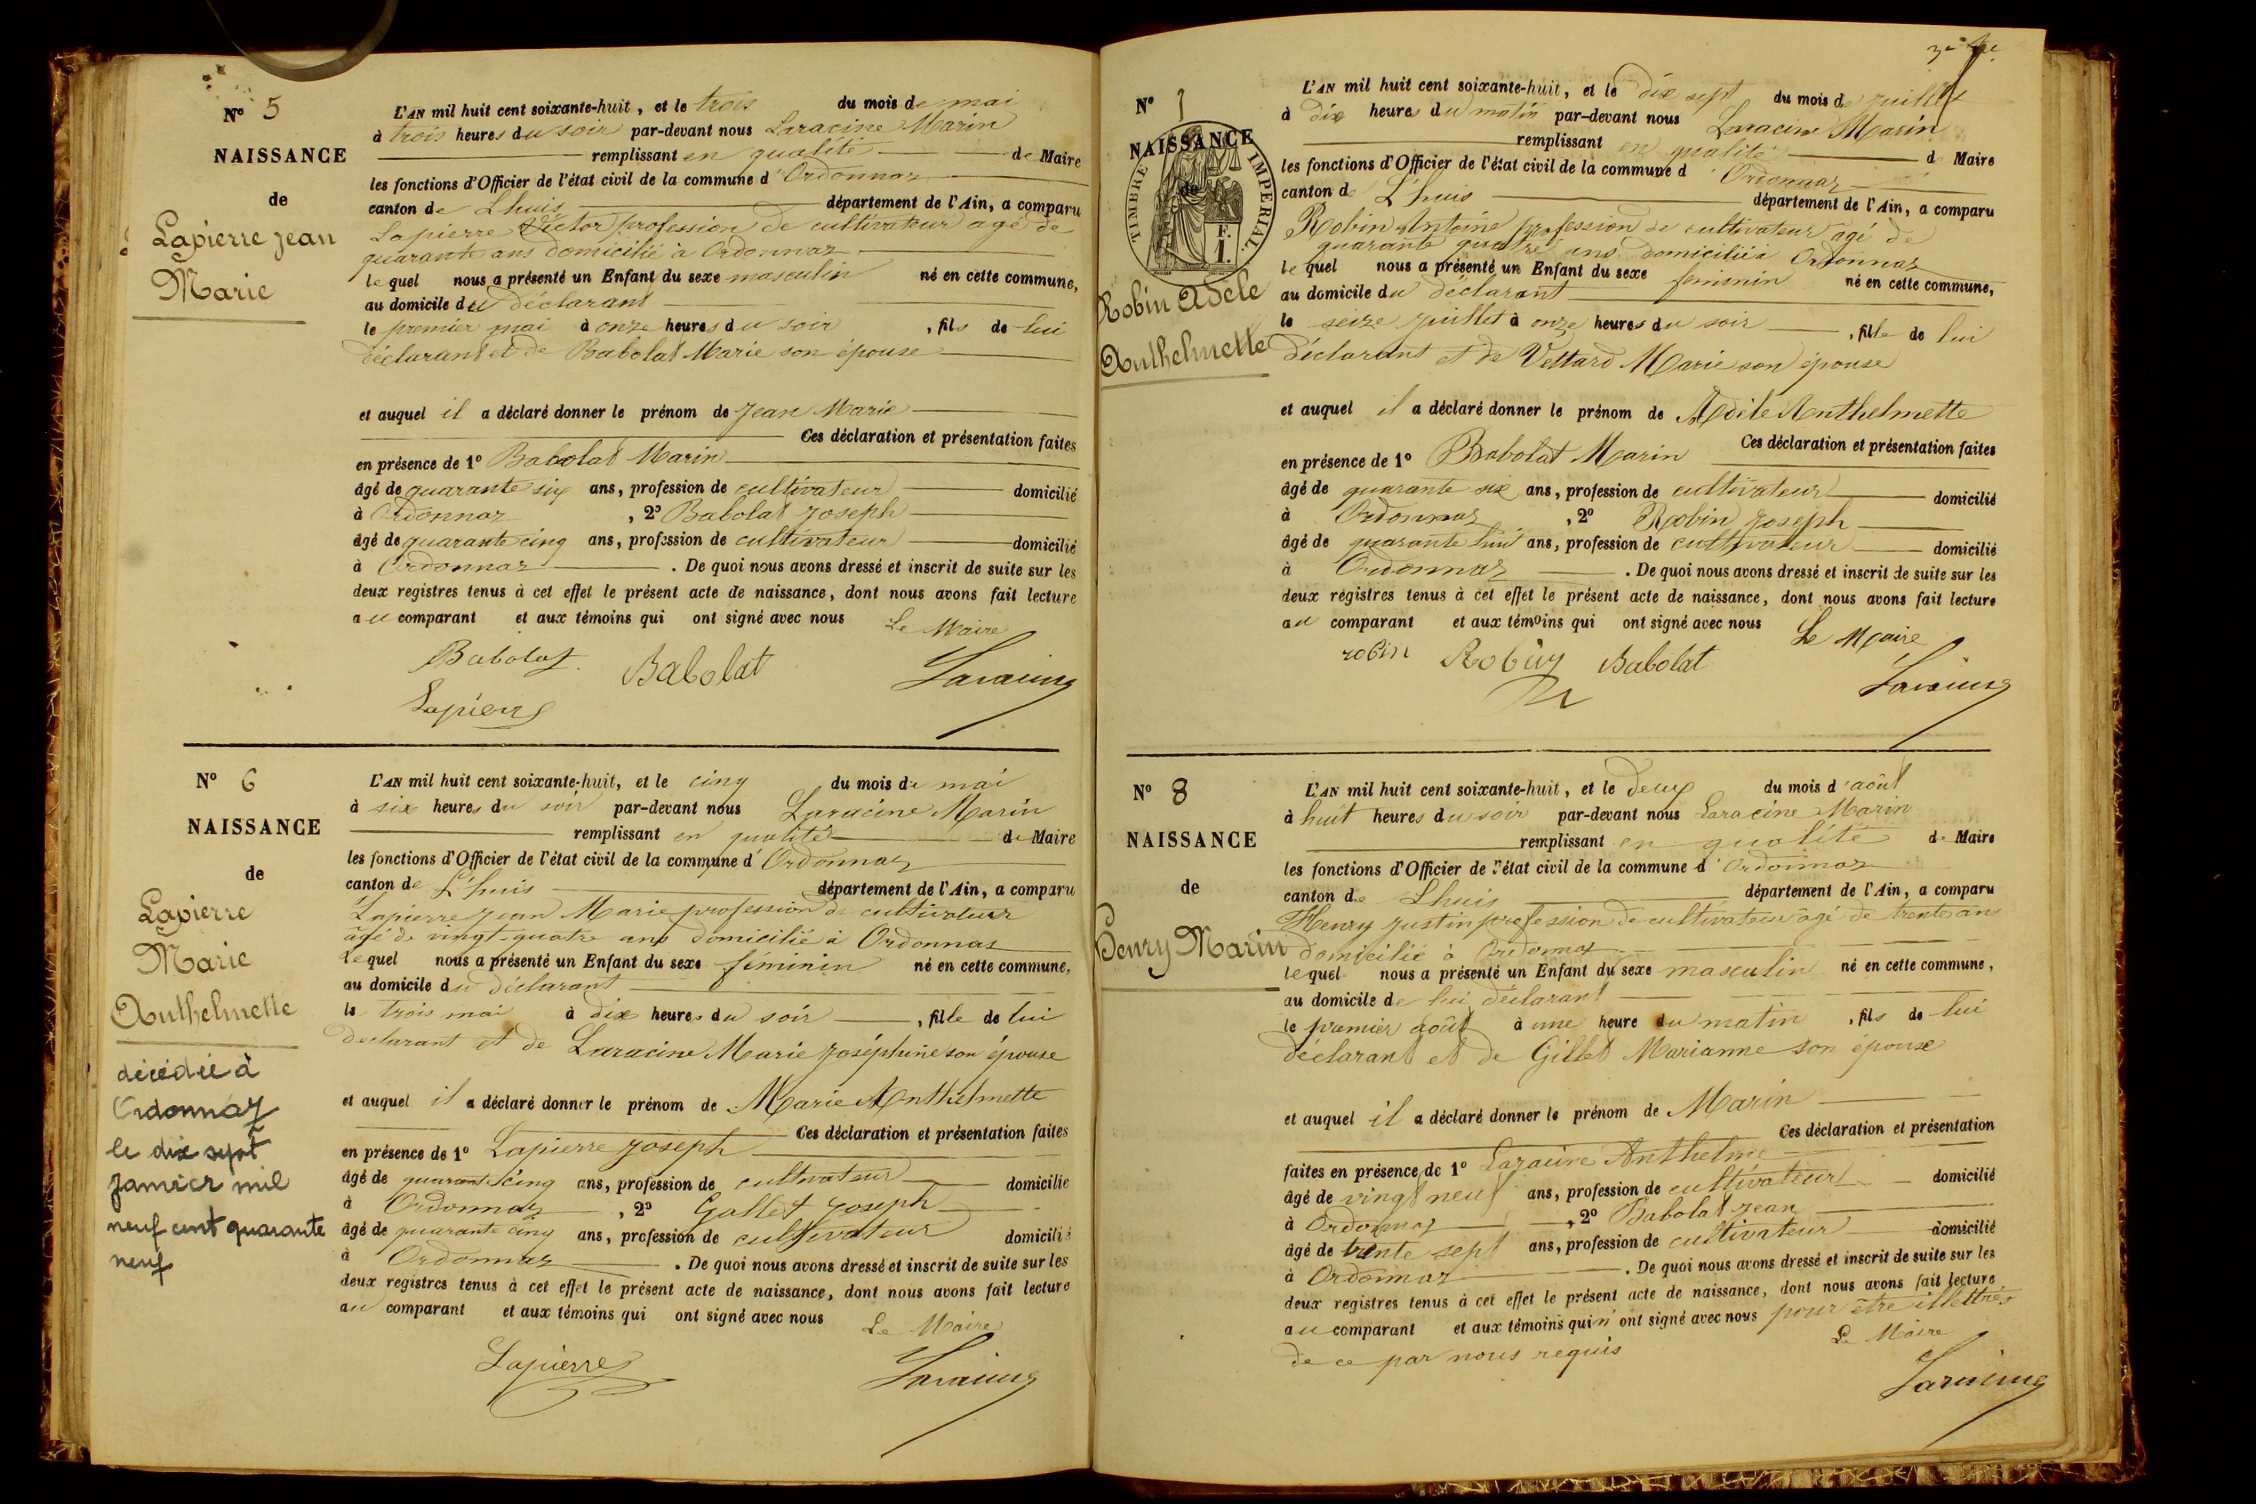 Nº 5
NAISSANCE
de
Lapierre Jean
Marie
L'AN mil huit cent soixante-huit, et le trois du mois de mai
à trois heures du soir par-devant nous Laracine Marin
remplissant en qualité de Maire
les fonctions d'Officier de l'état civil de la commune d'Ordonnaz
canton de Lhuis département de l'Ain, a comparu
Lapierre Victor profession de cultivateur agé de
quarante ans domicilié à Ordonnaz
le quel nous a présenté un Enfant du sexe masculin né en cette commune,
au domicile du déclarant
le premier mai à onze heures du soir, fils de lui
déclarant et de Babolat Marie son épouse
et auquel il a déclaré donner le prénom de Jean Marie
Ces déclaration et présentation faites
en présence de 1º Babolat Marin
âgé de quarante six ans, profession de cultivateur domicilié
à Ordonnaz, 2º Babolat Joseph
âgé de quarante cinq ans, profession de cultivateur domicilié
à Ordonnaz. De quoi nous avons dressé et inscrit de suite sur les
deux registres tenus à cet effet le présent acte de naissance, dont nous avons fait lecture
au comparant et aux témoins qui ont signé avec nous Le Maire
Babolat Babolat Laracine
Lapierre
Nº 6
NAISSANCE
de
Lapierre
Marie
Anthelmette
décédée à
Ordonnaz
le dix sept
janvier mil
neuf cent quarante
neuf
L'AN mil huit cent soixante-huit, et le cinq du mois de mai
à six heures du soir par-devant nous Laracine Marin
remplissant en qualité de Maire
les fonctions d'Officier de l'état civil de la commune d'Ordonnaz
canton de L'huis département de l'Ain, a comparu
Lapierre Jean Marie profession de cultivateur
âgé de vingt-quatre ans domicilié à Ordonnaz
Lequel nous a présenté un Enfant du sexe féminin né en cette commune,
au domicile du déclarant
le trois mai à dix heures du soir, fille de lui
déclarant et de Laracine Marie Joséphine son épouse
et auquel il a déclaré donner le prénom de Marie Anthelmette
Ces déclaration et présentation faites
en présence de 1º Lapierre Joseph
âgé de quarante cinq ans, profession de cultivateur domicilié
à Ordonnaz, 2º Gallet Joseph
âgé de quarante cinq ans, profession de cultivateur domicilié
à Ordonnaz. De quoi nous avons dressé et inscrit de suite sur les
deux registres tenus à cet effet le présent acte de naissance, dont nous avons fait lecture
au comparant et aux témoins qui ont signé avec nous Le Maire
Lapierre Laracine
Nº 7
NAISSANCE
de
TIMBRE IMPERIAL.
F.
1.
Robin Adèle
Anthelmette
L'AN mil huit cent soixante-huit, et le dix sept du mois de juillet
à dix heures du matin par-devant nous Laracine Marin
remplissant en qualité de Maire
les fonctions d'Officier de l'état civil de la commune d'Ordonnaz
canton de L'huis département de l'Ain, a comparu
Robin Antoine profession de cultivateur agé de
quarante quatre ans domicilié à Ordonnaz
le quel nous a présenté un Enfant du sexe feminin né en cette commune,
au domicile du déclarant
le seize juillet à onze heures du soir, fille de lui
déclarant et de Vettard Marie son épouse
et auquel il a déclaré donner le prénom de Adèle Anthelmette
Ces déclaration et présentation faites
en présence de 1º Babolat Marin
âgé de quarante six ans, profession de cultivateur domicilié
à Ordonnaz, 2º Robin Joseph
âgé de quarante huit ans, profession de cultivateur domicilié
à Ordonnaz. De quoi nous avons dressé et inscrit de suite sur les
deux régistres tenus à cet effet le présent acte de naissance, dont nous avons fait lecture
au comparant et aux témoins qui ont signé avec nous Le Maire
robin Robin Babolat Laracine
Nº 8
NAISSANCE
de
Henry Marin
L'AN mil huit cent soixante-huit, et le deux du mois d'août
à huit heures du soir par-devant nous Laracine Marin
remplissant en qualité de Maire
les fonctions d'Officier de l'état civil de la commune d'Ordonnaz
canton de Lhuis département de l'Ain, a comparu
Henry Justin profession de cultivateur âgé de trente ans
domicilié à Ordonnaz
lequel nous a présenté un Enfant du sexe masculin né en cette commune,
au domicile de lui déclarant
le premier août à une heure du matin, fils de lui
déclarant et de Gillet Marianne son épouse
et auquel il a déclaré donner le prénom de Marin
Ces déclaration et présentation
faites en présence de 1º Laracine Anthelme
âgé de vingt neuf ans, profession de cultivateur domicilié
à Ordonnaz, 2º Babolat Jean
âgé de trente sept ans, profession de cultivateur domicilié
à Ordonnaz. De quoi nous avons dressé et inscrit de suite sur les
deux registres tenus à cet effet le présent acte de naissance, dont nous avons fait lecture
au comparant et aux témoins qui n'ont signé avec nous pour être illettrés
de ce par nous requis Le Maire
Laracine